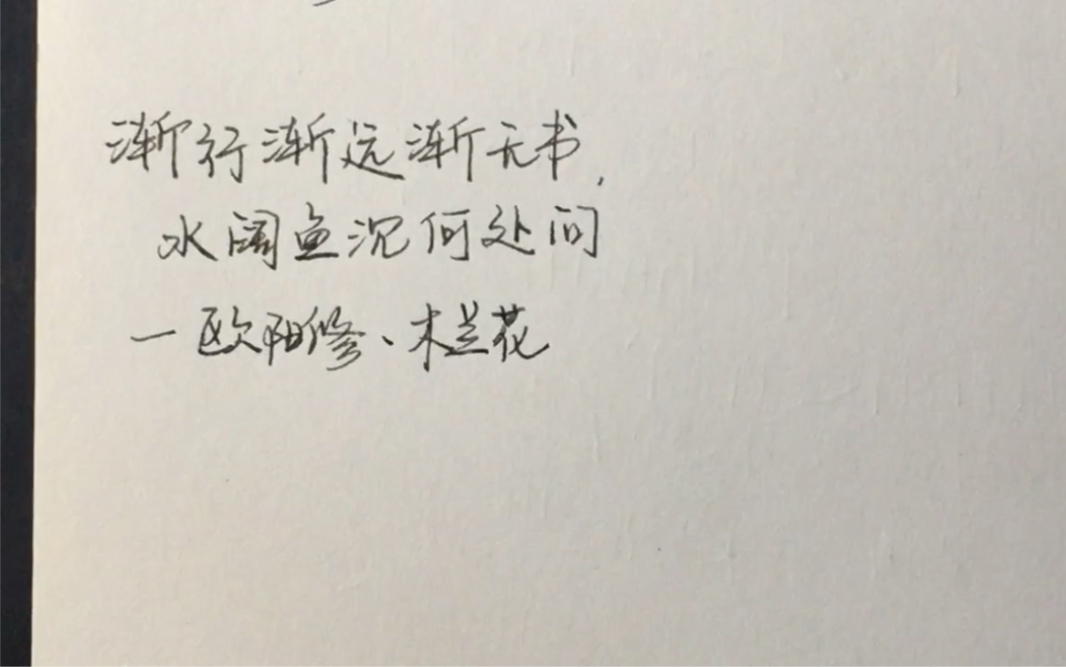 渐行渐远渐无书,
水阔鱼沉何处问
一欧阳修、木兰花